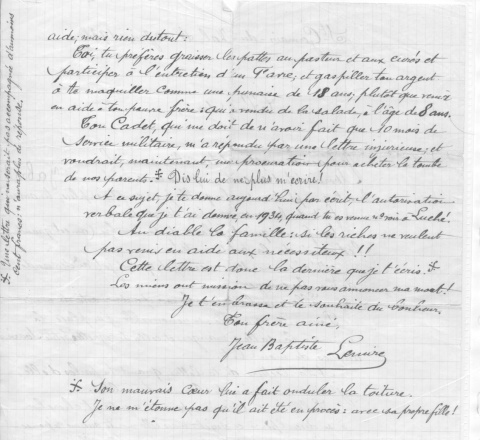 aide, mais rien du tout :
Toi, tu préfères graisser les pattes au pasteur et aux curés et
participer à l'entretien d'un Pavé; et gaspiller ton argent
à te maquiller comme une punaise de 18 ans, plutôt que venir
en aide à ton pauvre frère : qui a vendu de la salade, à l'âge de 8 ans.
Ton Cadet, qui me doit de n'avoir fait que 10 mois de
service militaire, m'a répondu par une lettre injurieuse; et
voudrait, maintenant, une procuration pour acheter la tombe
de nos parents. * Dis lui de ne plus m'écrire!
A ce sujet, je te donne aujourd'hui par écrit, l'autorisation
verbale que je t'ai donnée, en 1934, quand tu es venue à Luché.
Au diable la famille : si les riches ne veulent
pas venir en aide aux nécessiteux !!
Cette lettre est donc la dernière que je t'écris. *
Les miens ont mission de ne pas vous annoncer ma mort!
Je t'embrasse et te souhaite du bonheur.
Ton frère aîné,
Jean Baptiste
* Son mauvais cœur lui a fait onduler la toiture.
Je ne m'étonne pas qu'il ait été en procès : avec sa propre fille!
* Une lettre qui ne serait pas accompagnée d'au moins
Cent francs : n'aura plus de réponse.